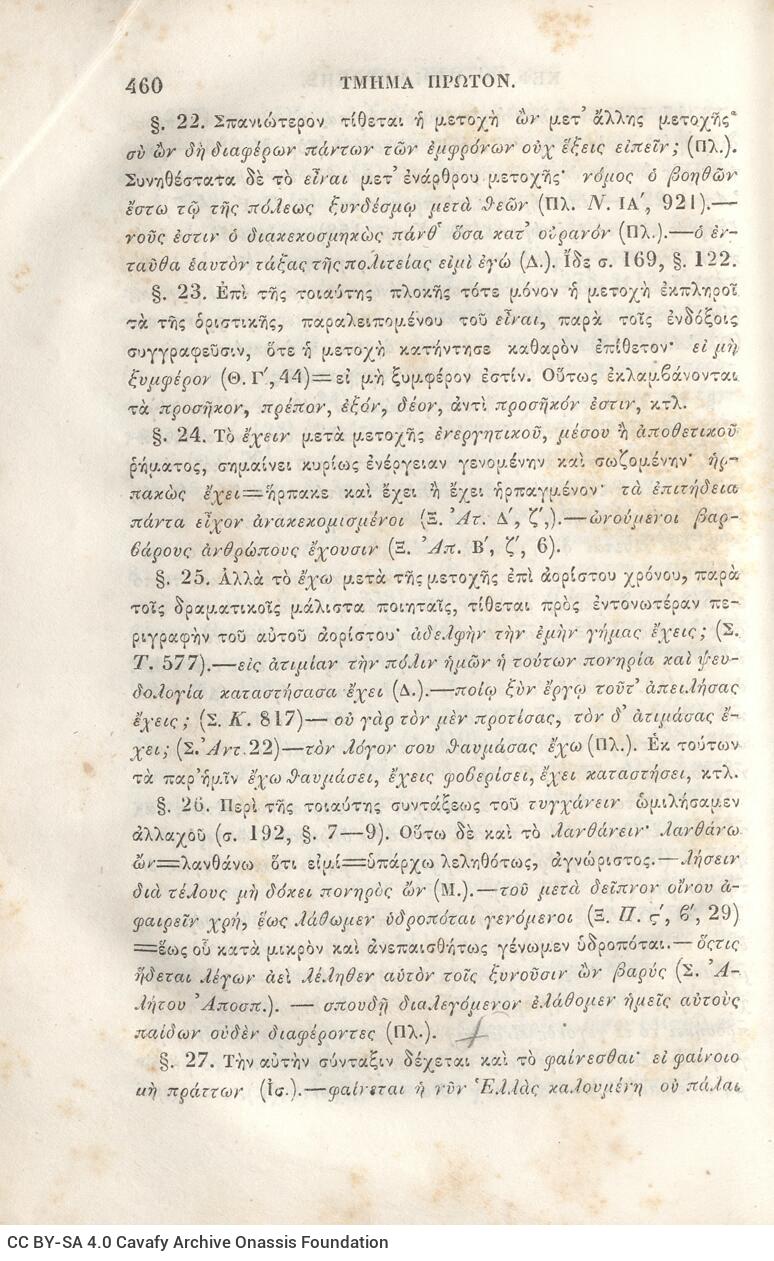 460
ΤΜΗΜΑ ΠΡΩΤΟΝ.
§. 22. Σπανιώτερον τίθεται ἡ μετοχὴ ὢν μετ’ ἄλλης μετοχῆς·
σὺ ὢν δὴ διαφέρων πάντων τῶν ἐμφρόνων οὐχ ἕξεις εἰπεῖν; (Πλ.).
Συνηθέστατα δὲ τὸ εἶναι μετ’ ἐνάρθρου μετοχῆς· νόμος ὁ βοηθῶν
ἔστω τῷ τῆς πόλεως ξυνδέσμῳ μετὰ θεῶν (Πλ. Ν. ΙΑ′, 921).—
νοῦς ἐστιν ὁ διακεκοσμηκὼς πάνθ’ ὅσα κατ’ οὐρανόν (Πλ.).—ὁ ἐν-
ταῦθα ἑαυτὸν τάξας τῆς πολιτείας εἰμὶ ἐγώ (Δ.). Ἴδε σ. 169, §. 122.
§. 23. Ἐπὶ τῆς τοιαύτης πλοκῆς τότε μόνον ἡ μετοχὴ ἐκπληροῖ
τὰ τῆς ὁριστικῆς, παραλειπομένου τοῦ εἶναι, παρὰ τοῖς ἐνδόξοις
συγγραφεῦσιν, ὅτε ἡ μετοχὴ κατήντησε καθαρὸν ἐπίθετον· εἰ μὴ
ξυμφέρον (Θ. Γ′, 44)=εἰ μὴ ξυμφέρον ἐστίν. Οὕτως ἐκλαμβάνονται
τὰ προσῆκον, πρέπον, ἐξόν, δέον, ἀντὶ προσῆκόν ἐστιν, κτλ.
§. 24. Τὸ ἔχειν μετὰ μετοχῆς ἐνεργητικοῦ, μέσου ἢ ἀποθετικοῦ
ῥήματος, σημαίνει κυρίως ἐνέργειαν γενομένην καὶ σωζομένην· ἡρ-
πακὼς ἔχει=ἥρπακε καὶ ἔχει ἢ ἔχει ἡρπαγμένον· τὰ ἐπιτήδεια
πάντα εἶχον ἀνακεκομισμένοι (Ξ. Ἀτ. Δ′, ζ′,).—ὠνούμενοι βαρ-
βάρους ἀνθρώπους ἔχουσιν (Ξ. Ἀπ. Β′, ζ′, 6).
§. 25. Ἀλλὰ τὸ ἔχω μετὰ τῆς μετοχῆς ἐπὶ ἀορίστου χρόνου, παρὰ
τοῖς δραματικοῖς μάλιστα ποιηταῖς, τίθεται πρὸς ἐντονωτέραν πε-
ριγραφὴν τοῦ αὐτοῦ ἀορίστου· ἀδελφὴν τὴν ἐμὴν γήμας ἔχεις; (Σ.
Τ. 577).—εἰς ἀτιμίαν τὴν πόλιν ἡμῶν ἡ τούτων πονηρία καὶ ψευ-
δολογία καταστήσασα ἔχει (Δ.).—ποίῳ ξὺν ἔργῳ τοῦτ’ ἀπειλήσας
ἔχεις; (Σ. Κ. 817)— οὐ γὰρ τὸν μὲν προτίσας, τὸν δ’ ἀτιμάσας ἔ-
χει; (Σ. Ἀντ. 22)—τὸν λόγον σου θαυμάσας ἔχω (Πλ.). Ἐκ τούτων
τὰ παρ’ ἡμῖν ἔχω θαυμάσει, ἔχεις φοβερίσει, ἔχει καταστήσει, κτλ.
§. 26. Περὶ τῆς τοιαύτης συντάξεως τοῦ τυγχάνειν ὡμιλήσαμεν
ἀλλαχοῦ (σ. 192, §. 7—9). Οὕτω δὲ καὶ τὸ λανθάνειν· λανθάνω
ὢν=λανθάνω ὅτι εἰμί=ὑπάρχω λεληθότως, ἀγνώριστος.—λήσειν
διὰ τέλους μὴ δόκει πονηρὸς ὤν (Μ.).—τοῦ μετὰ δεῖπνον οἴνου ἀ-
φαιρεῖν χρή, ἕως λάθωμεν ὑδροπόται γενόμενοι (Ξ. Π. ς′, β′, 29)
=ἕως οὗ κατὰ μικρὸν καὶ ἀνεπαισθήτως γένωμεν ὑδροπόται.— ὅςτις
ἥδεται λέγων ἀεὶ λέληθεν αὑτὸν τοῖς ξυνοῦσιν ὢν βαρύς (Σ. Ἀ-
λήτου Ἀποσπ.). — σπουδῇ διαλεγόμενοι ἐλάθομεν ἡμεῖς αὐτοὺς
παίδων οὐδὲν διαφέροντες (Πλ.).
§. 27. Τὴν αὐτὴν σύνταξιν δέχεται καὶ τὸ φαίνεσθαι· εἰ φαίνοιο
μὴ πράττων (Ἰσ.).—φαίνεται ἡ νῦν Ἑλλὰς καλουμένη οὐ πάλαι
CC BY-SA 4.0 Cavafy Archive Onassis Foundation